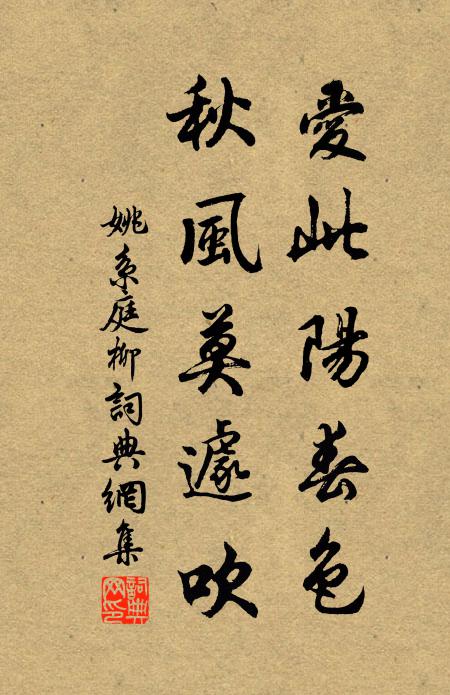 愛此陽春色
秋風莫遽吹
姚系庭柳詞典網集
詞典網印